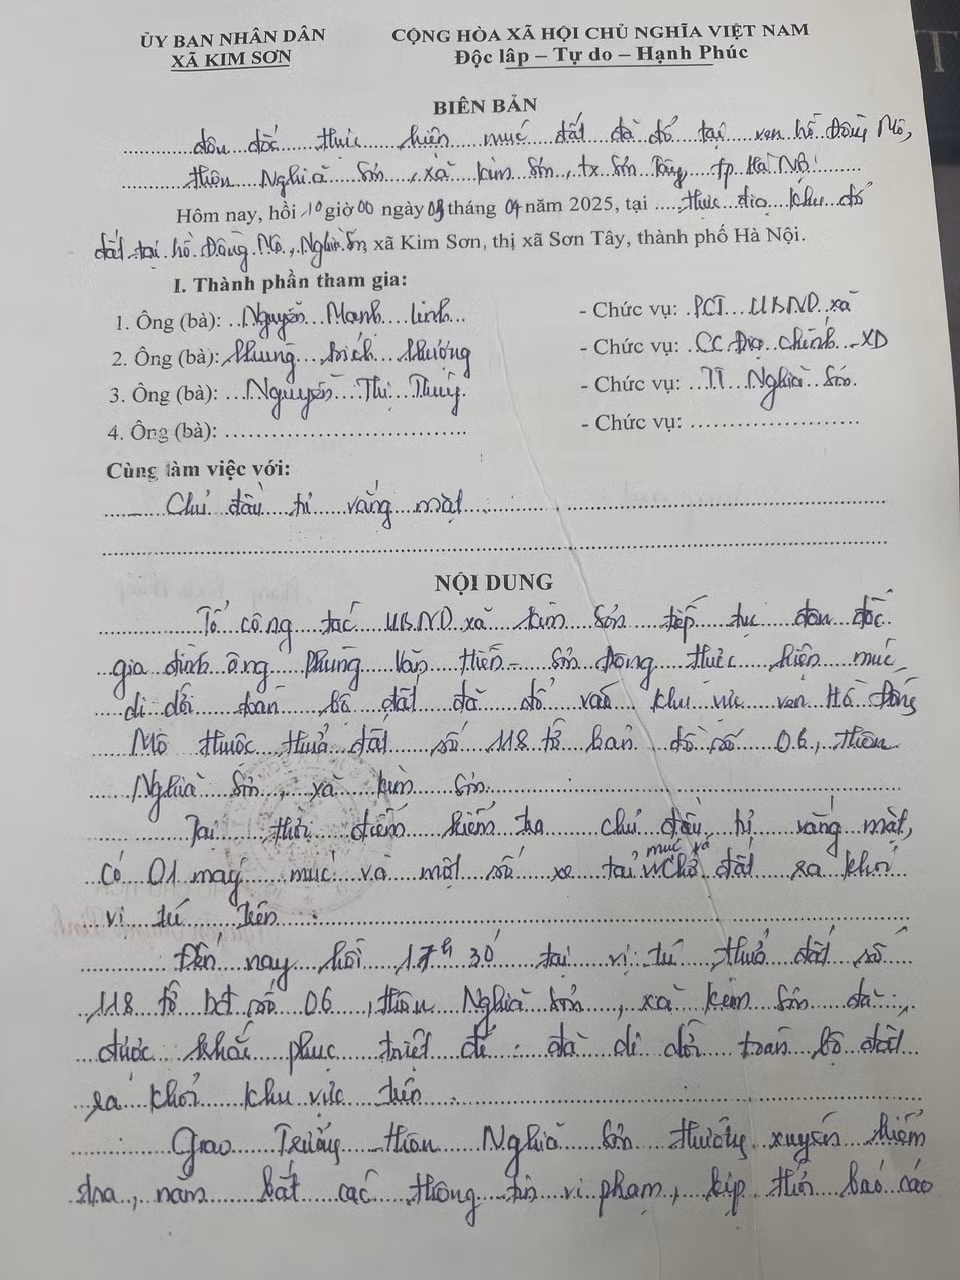 ỦY BAN NHÂN DÂN
XÃ KIM SƠN
CỘNG HÒA XÃ HỘI CHỦ NGHĨA VIỆT NAM
Độc lâp – Tự do – Hạnh Phúc
BIÊN BẢN
đôn đốc thực hiện múc đất đã đổ tại ven hồ Đồng Mô,
thôn Nghĩa Sơn, xã Kim Sơn, tx Sơn Tây, tp Hà Nội
Hôm nay, hồi 10 giờ 00 ngày 08 tháng 04 năm 2025, tại thực địa khu đổ
đất tại hồ Đồng Mô, Nghĩa Sơn, xã Kim Sơn, thị xã Sơn Tây, thành phố Hà Nội.
I. Thành phần tham gia:
1. Ông (bà): Nguyễn Mạnh Linh - Chức vụ: PCT UBND xã
2. Ông (bà): Phùng Bích Phương - Chức vụ: CC Địa chính - XD
3. Ông (bà): Nguyễn Thị Thuý - Chức vụ: TT Nghĩa Sơn
4. Ông (bà): - Chức vụ:
Cùng làm việc với:
Chủ đầu tư vắng mặt
NỘI DUNG
Tổ công tác UBND xã Kim Sơn tiếp tục đôn đốc
gia đình ông Phùng Văn Hiến - Sơn Đông thực hiện múc,
di dời toàn bộ đất đã đổ vào khu vực ven Hồ Đồng
Mô thuộc thửa đất số 118 tờ bản đồ số 06, thôn
Nghĩa Sơn, xã Kim Sơn.
Tại thời điểm kiểm tra chủ đầu tư vắng mặt,
múc và
có 01 máy múc và một số xe tải chở đất ra khỏi
vị trí trên.
Đến nay hồi 17h 30' tại vị trí thửa đất số
118 tờ bđ số 06, thôn Nghĩa Sơn, xã Kim Sơn đã
được khắc phục triệt để. đã di dời toàn bộ đất
ra khỏi khu vực trên.
Giao Trưởng thôn Nghĩa Sơn thường xuyên kiểm
tra, nắm bắt các thông tin vi phạm, kịp thời báo cáo